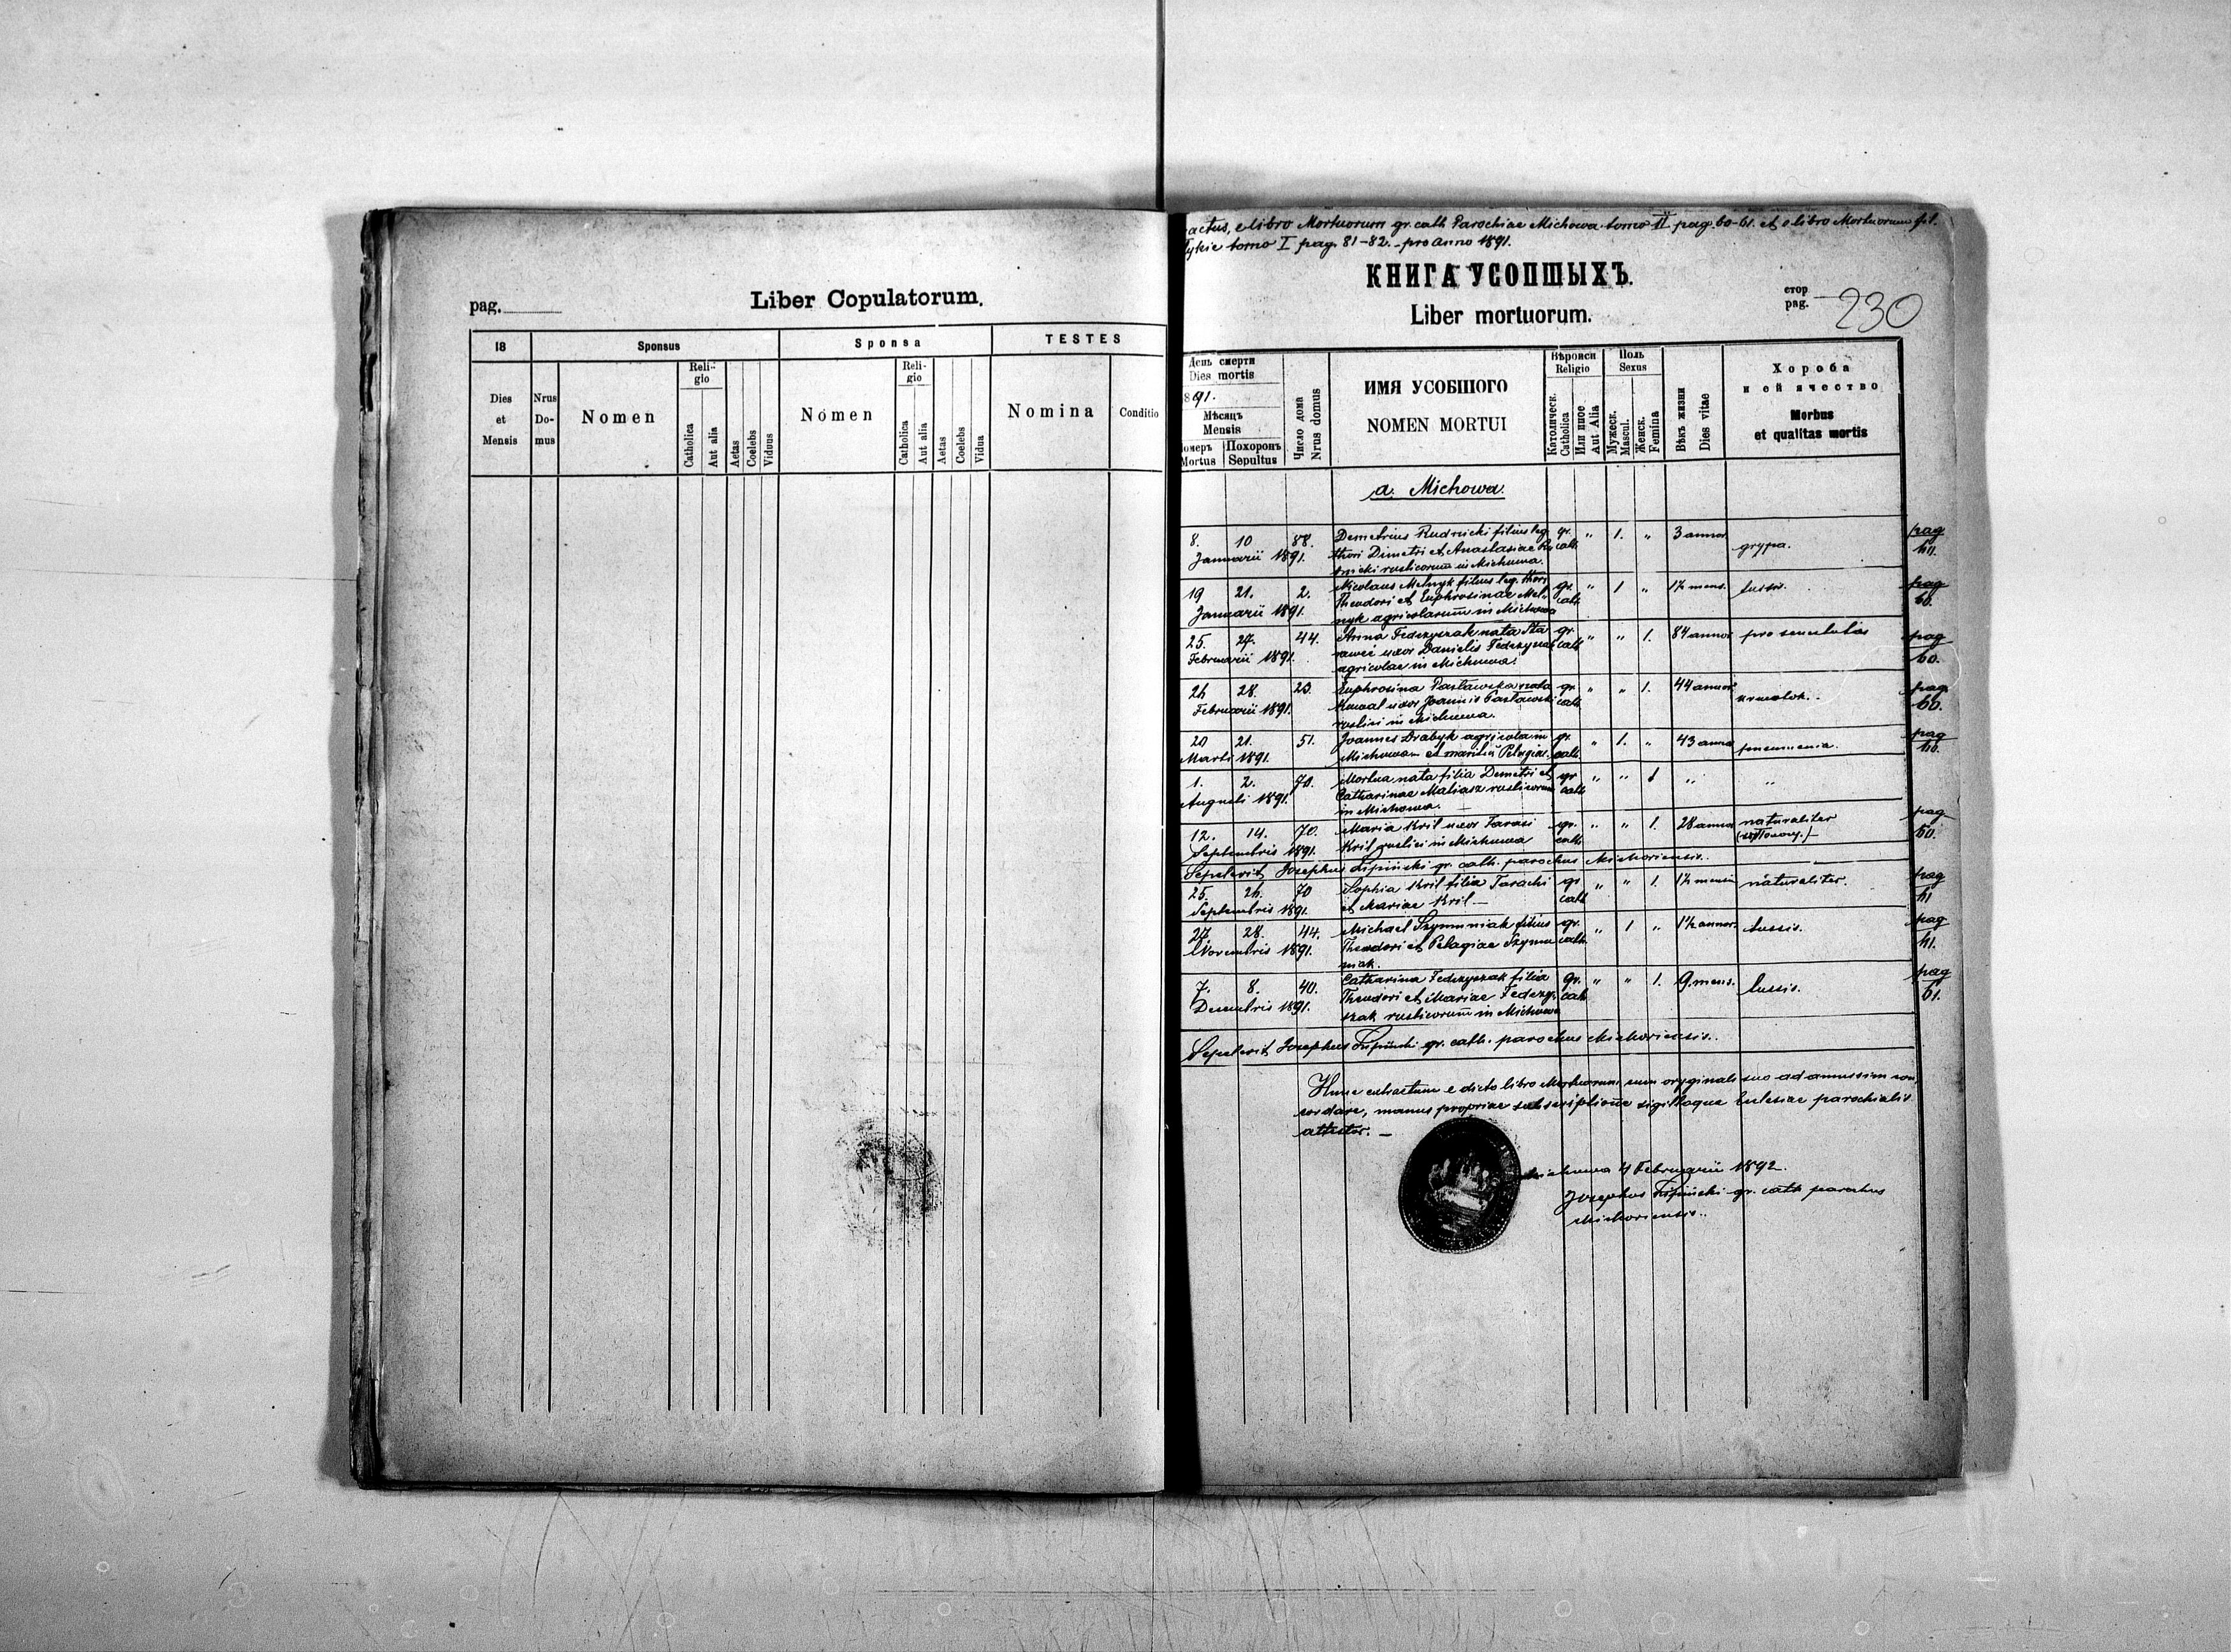 pag.
Liber Copulatorum.
18
Sponsus
Sponsa
TESTES
Dies et Mensis
Nrus Domus
Nomen
Religio
Catholica
Aut alia
Aetas
Coelebs
Viduus
Nomen
Religio
Catholica
Aut alia
Aetas
Coelebs
Vidua
Nomina
Conditio
actus, e libro Mortuorum gr. cath Parochiae Michowa tomo II pag. 60-61. et e libro Mortuorum
tomo I pag. 81-82. pro anno 1891.
КНИГА УСОПШЫХЪ.
Liber mortuorum.
стор pag. 230
День смерти
Dies mortis
891.
Мѣсяцъ
Mensis
омеръ Mortus
Похоронъ Sepultus
Число дома
Nrus domus
ИМЯ УСОБШОГО
NOMEN MORTUI
Вѣроиси
Religio
Католическ.
Catholica
Или иное
Aut Alia
Поль
Sexus
Мужеск.
Mascul.
Женск.
Femina
Вѣкъ жизни
Dies vitae
Хороба
и ей ячество
Morbus
et qualitas mortis
a. Michowa.
8. 10 88. Demetrius Rudnicki filius leg. gr. " 1. " 3 annor pag
Januarii 1891. thori Dimetri et Anastasiae Ru cath grypa.
dnicki rusticorum in Michowa.
19 21. 2. Nicolaus Melnyk filius leg. thori gr. " 1 " 1½ mens. tussis. pag
Januarii 1891. Theodori et Euphrosinae Mel- cath 60.
nyk agricolarum in Michowa
25. 27. 44. Anna Fedczyszak nata gr. " " 1. 84 annor pro senectutis pag
Februarii 1891. uxor Danielis cath 60.
agricolae in Michowa.
26 28. 23. Euphrosina Pasławska nata gr. " " 1. 44 annor pag.
Februarii 1891. Kowal uxor Joannis Pasławski cath 60.
rustici in Michowa.
20 21. 51. Joannes Drabyk agricola in gr. " 1. " 43 annor pneumonia. pag
Marti 1891. Michowa et maritus Pelagiae. cath 60.
1. 2. 70. Mortua nata filia Demetri et gr " " 1 " "
Augusti 1891. Catharinae Maliasz rusticorum cath
in Michowa.
12. 14. 70. Maria Kril uxor Tarasi gr. " " 1. 28 annor naturaliter pag
Septembris 1891. Kril rustici in Michowa cath 60.
Sepelevit Josephus Lipiński gr. cath. parochus Michoviensis.
25. 26. 70 Sophia Kril filia Tarachi gr. " " 1. 1½ mensi naturaliter. pag
Septembris 1891. et Mariae Kril — cath 61
27. 28. 44. Michael Szymuniak filius gr. " 1 " 1½ annor. tussis. pag
Novembris 1891. Theodori et Pelagiae Szymu cath 61.
niak.
7. 8. 40. Catharina Fedczyszak filia gr. " " 1. 9. mens. tussis. pag
Decembris 1891. Theodori et Mariae Fedczy- cath 61.
szak rusticorum in Michowa
Sepelevit Josephus Lipiński gr. cath. parochus Michoviensis.
Hunc extractum e dicto libro Mortuorum cum oryginali suo ad amussim con
cordare, manus propriae subscriptione sigilloque Eclesiae parochialis
attestor. —
Michowa 4 Februarii 1892.
Josephus Lipiński gr. cath parochus
Michoviensis.